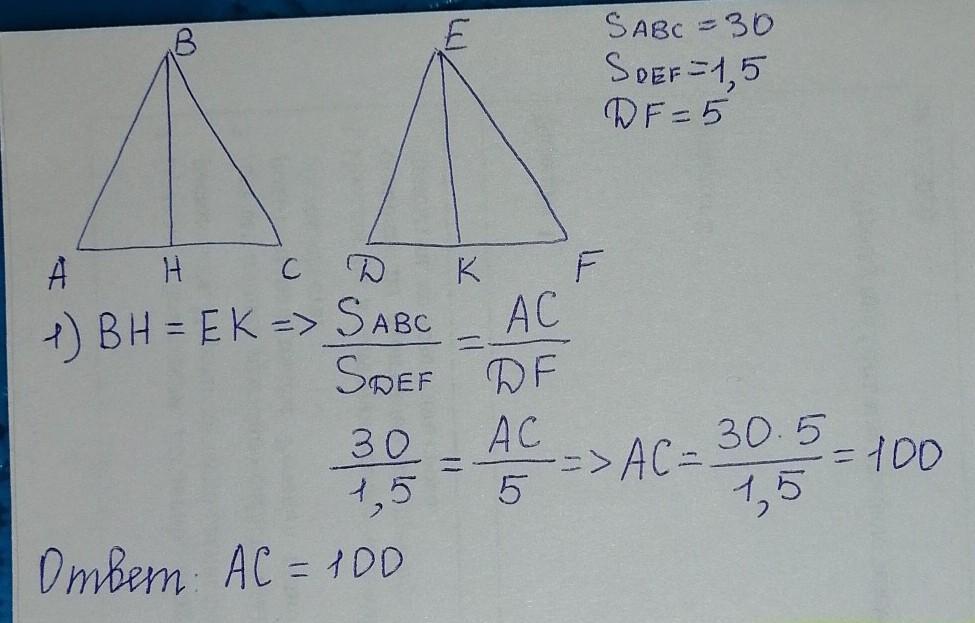 B
E
S ABC = 30
S DEF = 1,5
DF = 5
A H C D K F
1) BH = EK => S ABC / S DEF = AC / DF
30 / 1,5 = AC / 5 => AC = 30 · 5 / 1,5 = 100
Ответ: AC = 100